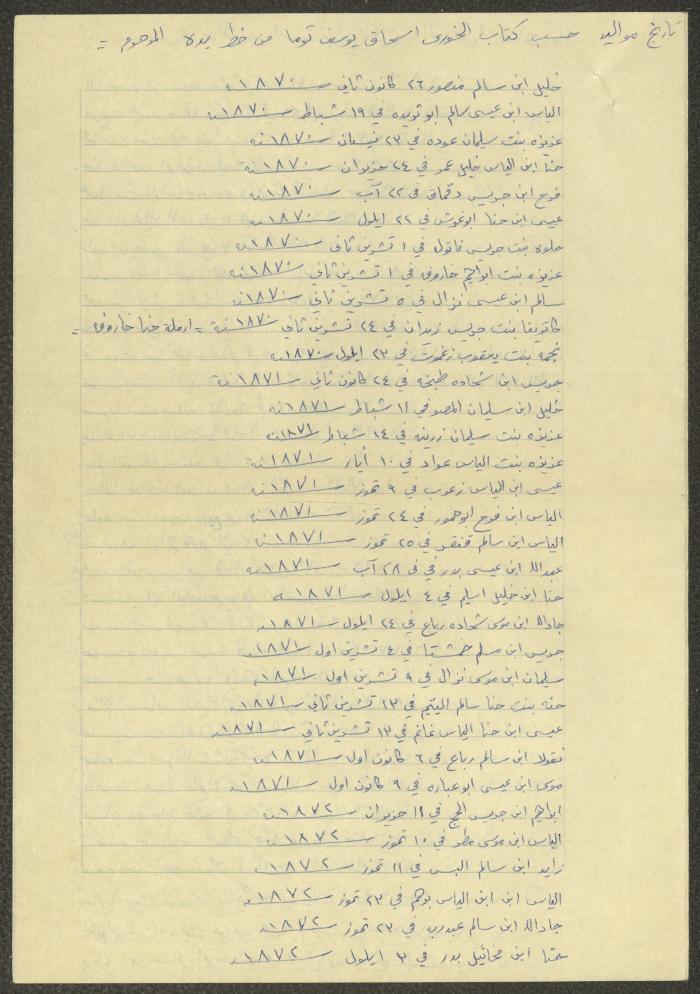 تاريخ مواليد حسب كتاب الخوري اسحاق يوسف توما من خط يده المرحوم =
خليل ابن سالم منصور ٢٦ كانون ثاني سنة ١٨٧٠
الياس ابن عيسى سالم ابو تويده في ١٩ شباط سنة ١٨٧٠
عزيزه بنت سليمان عوده في ٢٣ نيسان سنة ١٨٧٠
حنا ابن الياس خليل عمر في ٢٤ حزيران سنة ١٨٧٠
فرح ابن جريس دقماق في ٢٢ آب سنة ١٨٧٠
عيسى ابن حنا ابو غوش في ٢٢ ايلول سنة ١٨٧٠
حلوه بنت جريس قاقول في ١ تشرين ثاني سنة ١٨٧٠
عزيزه بنت ابراهيم خاروف في ١ تشرين ثاني سنة ١٨٧٠
سالم ابن عيسى نزال في ٥ تشرين ثاني سنة ١٨٧٠
كاترينا بنت جريس زيدان في ٢٤ تشرين ثاني سنة ١٨٧٠ = ارملة حنا خاروف =
نجمه بنت يعقوب زغموت في ٢٣ ايلول سنة ١٨٧٠
جريس ابن شحاده طبخه في ٢٤ كانون ثاني سنة ١٨٧١
خليل ابن سليمان المصو في ١١ شباط سنة ١٨٧١
عزيزه بنت سليمان زرينه في ١٤ شباط سنة ١٨٧١
عزيزه بنت الياس عواد في ١٠ أيار سنة ١٨٧١
عيسى ابن الياس زعرب في ٩ تموز سنة ١٨٧١
الياس ابن فرح ابو حمور في ٢٤ تموز سنة ١٨٧١
الياس ابن سالم قنقر في ٢٥ تموز سنة ١٨٧١
عبدالله ابن عيسى بدر في في ٢٨ آب سنة ١٨٧١
حنا ابن خليل اسليم في ٤ ايلول سنة ١٨٧١
جادالله ابن موسى شحاده رباع في ٢٤ ايلول سنة ١٨٧١
جريس ابن مسلم حمشتا في ٤ تشرين اول سنة ١٨٧١
سليمان ابن موسى نزال في ٩ تشرين اول سنة ١٨٧١
حنه بنت حنا سالم اليتيم في ١٣ تشرين ثاني سنة ١٨٧١
عيسى ابن حنا الياس غانم في ١٣ تشرين ثاني سنة ١٨٧١
نقولا ابن سالم رباع في ٦ كانون اول سنة ١٨٧١
موسى ابن عيسى ابو عباره في ٩ كانون اول سنة ١٨٧١
ابراهيم ابن جريس الحج في ١١ حزيران سنة ١٨٧٢
الياس ابن موسى مطر في ١٠ تموز سنة ١٨٧٢
زايد ابن سالم البس في ١١ تموز سنة ١٨٧٢
الياس ابن ابن الياس بوهم في ٢٣ تموز سنة ١٨٧٢
جادالله ابن سالم عبدربه في ٢٣ تموز سنة ١٨٧٢
حنا ابن مخائيل بدر في ٣ ايلول سنة ١٨٧٢